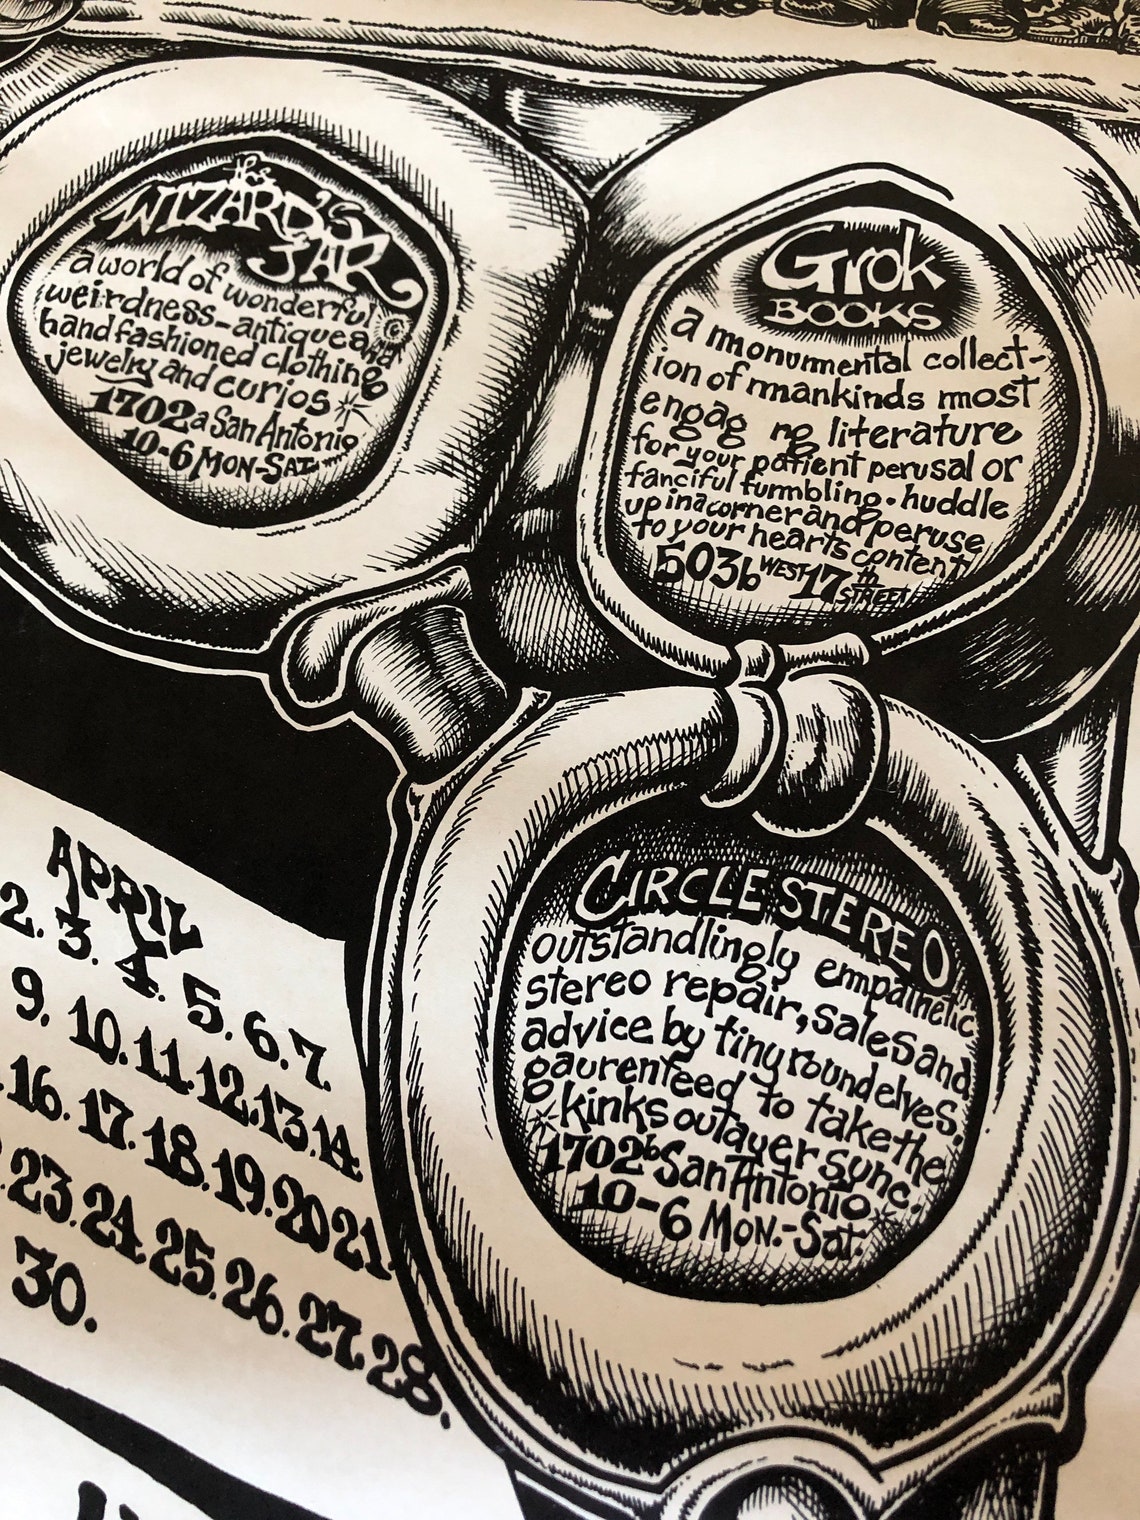 the
WIZARD'S
JAR
a world of wonderful
weirdness-antique and
handfashioned clothing
jewelry and curios
1702a San Antonio
10-6 MON-SAT.
Grok
BOOKS
a monumental collect-
ion of mankinds most
engag ng literature
for your patient perusal or
fanciful fumbling. huddle
up in a corner and peruse
to your hearts content
503b WEST 17th STREET
CIRCLE STEREO
outstandlingly empathetic
stereo repair, sales and
advice by tiny round elves.
gaurenteed to take the
kinks outayer sync.
1702b San Antonio
10-6 MON.-Sat.
APRIL
2. 3. 4. 5. 6. 7.
9. 10. 11. 12. 13. 14
16. 17. 18. 19. 20 21.
23. 24. 25. 26. 27. 28.
30.